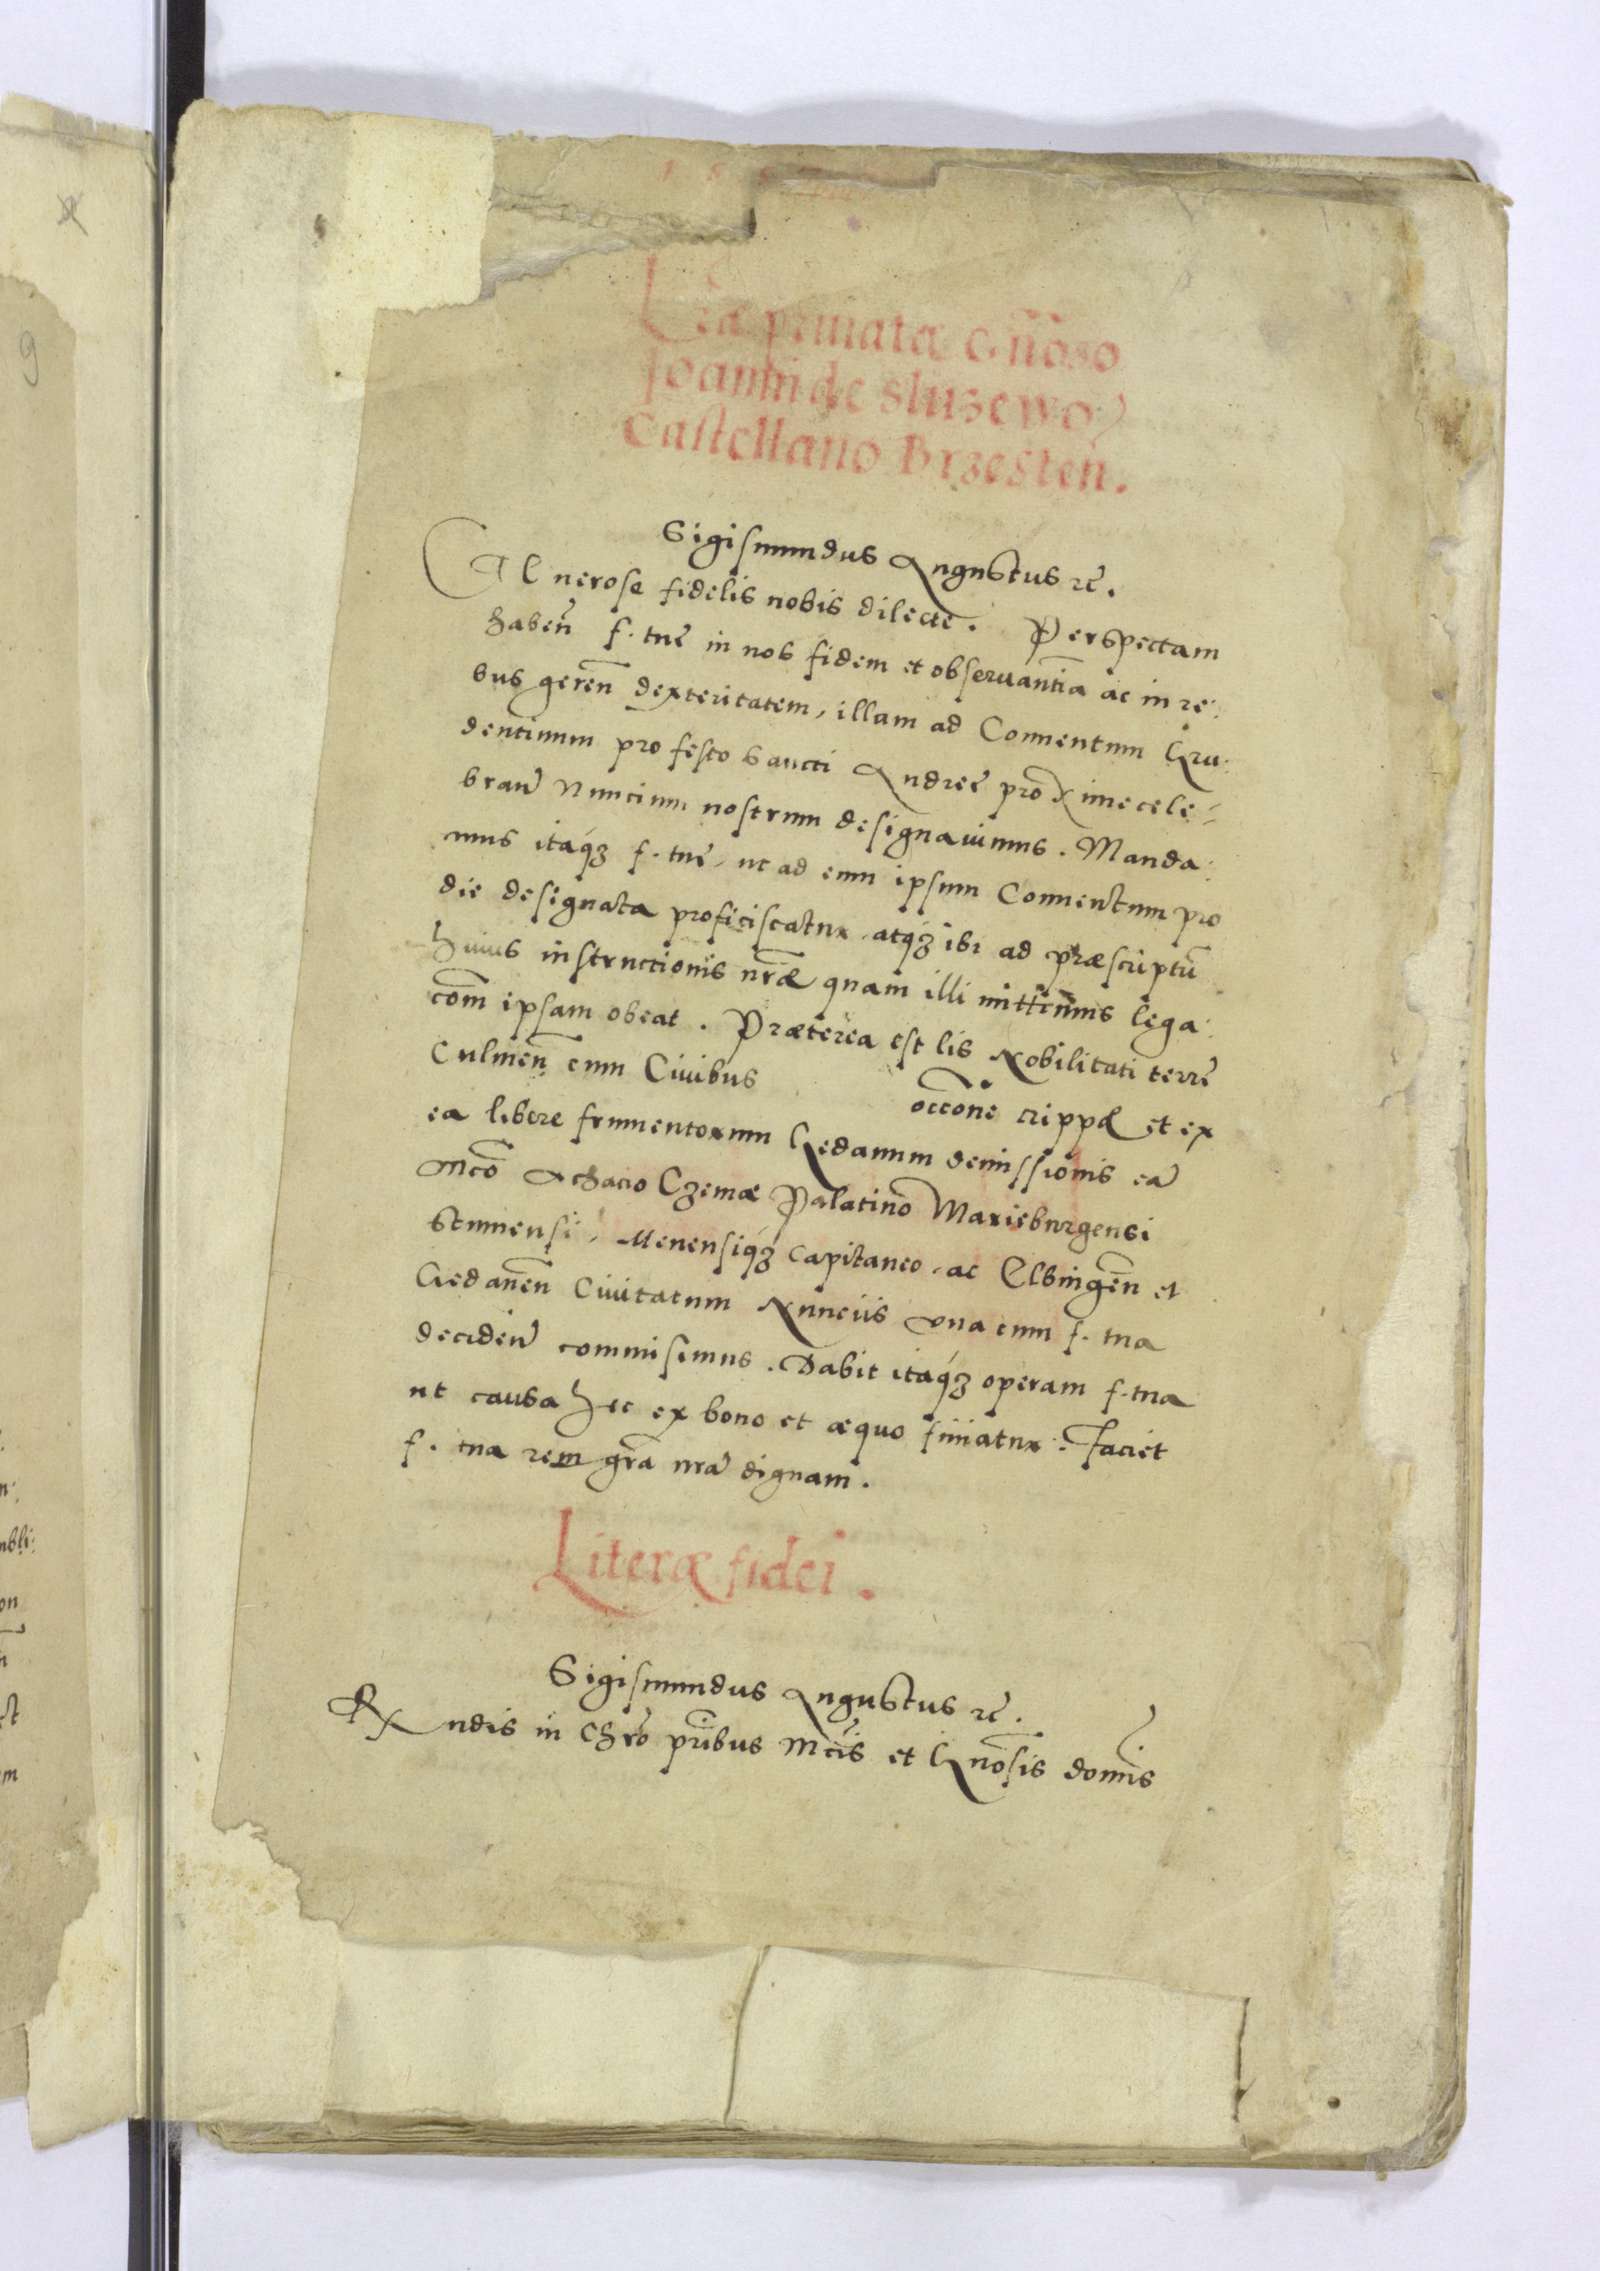 Lr̃æ priuatæ G. ño͂so
Joanni de Sluzewo
Castellano Brzesten̄.
Sigismundus Augustus rc̃.
Generose fidelis nobis dilecte. Perspectam
haben̄ f. tuẽ in nos fidem et obseruantia͂ ac in re:
bus geren̄ dexteritatem, illam ad Conuentum Gru:
dentinum pro festo Sancti Andreẽ proxime cele:
bran̄ Nuncium nostrum designauimus. Manda:
mus itaq́ꝫ f. tuẽ, ut ad eum ipsum Conuentum pro
die designata proficiscatur, atq́ꝫ ibi ad præscriptu͂
huius instructionis nr̃æ quam illi mittimus lega:
com̃ ipsam obeat. Præterea est lis Nobilitati terrẽ
Culmen̄ cum Ciuibus occõne et ex
ea libere frumentorum Gedanum demissionis ea͂
Mco͂ Achacio Czemæ Palatino Marieburgensi
Stumensi, Menensiq́ꝫ Capitaneo, ac Elbingen̄ et
Gedanen̄ Ciuitatum Nunciis vna cum f. tua
deciden̄ commisimus. Dabit itaq́ꝫ operam f. tua
ut causa hec ex bono et æquo finiatur. Faciet
f. tua rem gr̃a nr̃a dignam.
Literæ fidei.
Sigismundus Augustus rc̃.
Rndis in Chr̃o pr̃ibus Mcis et Gño͂sis dom̃is